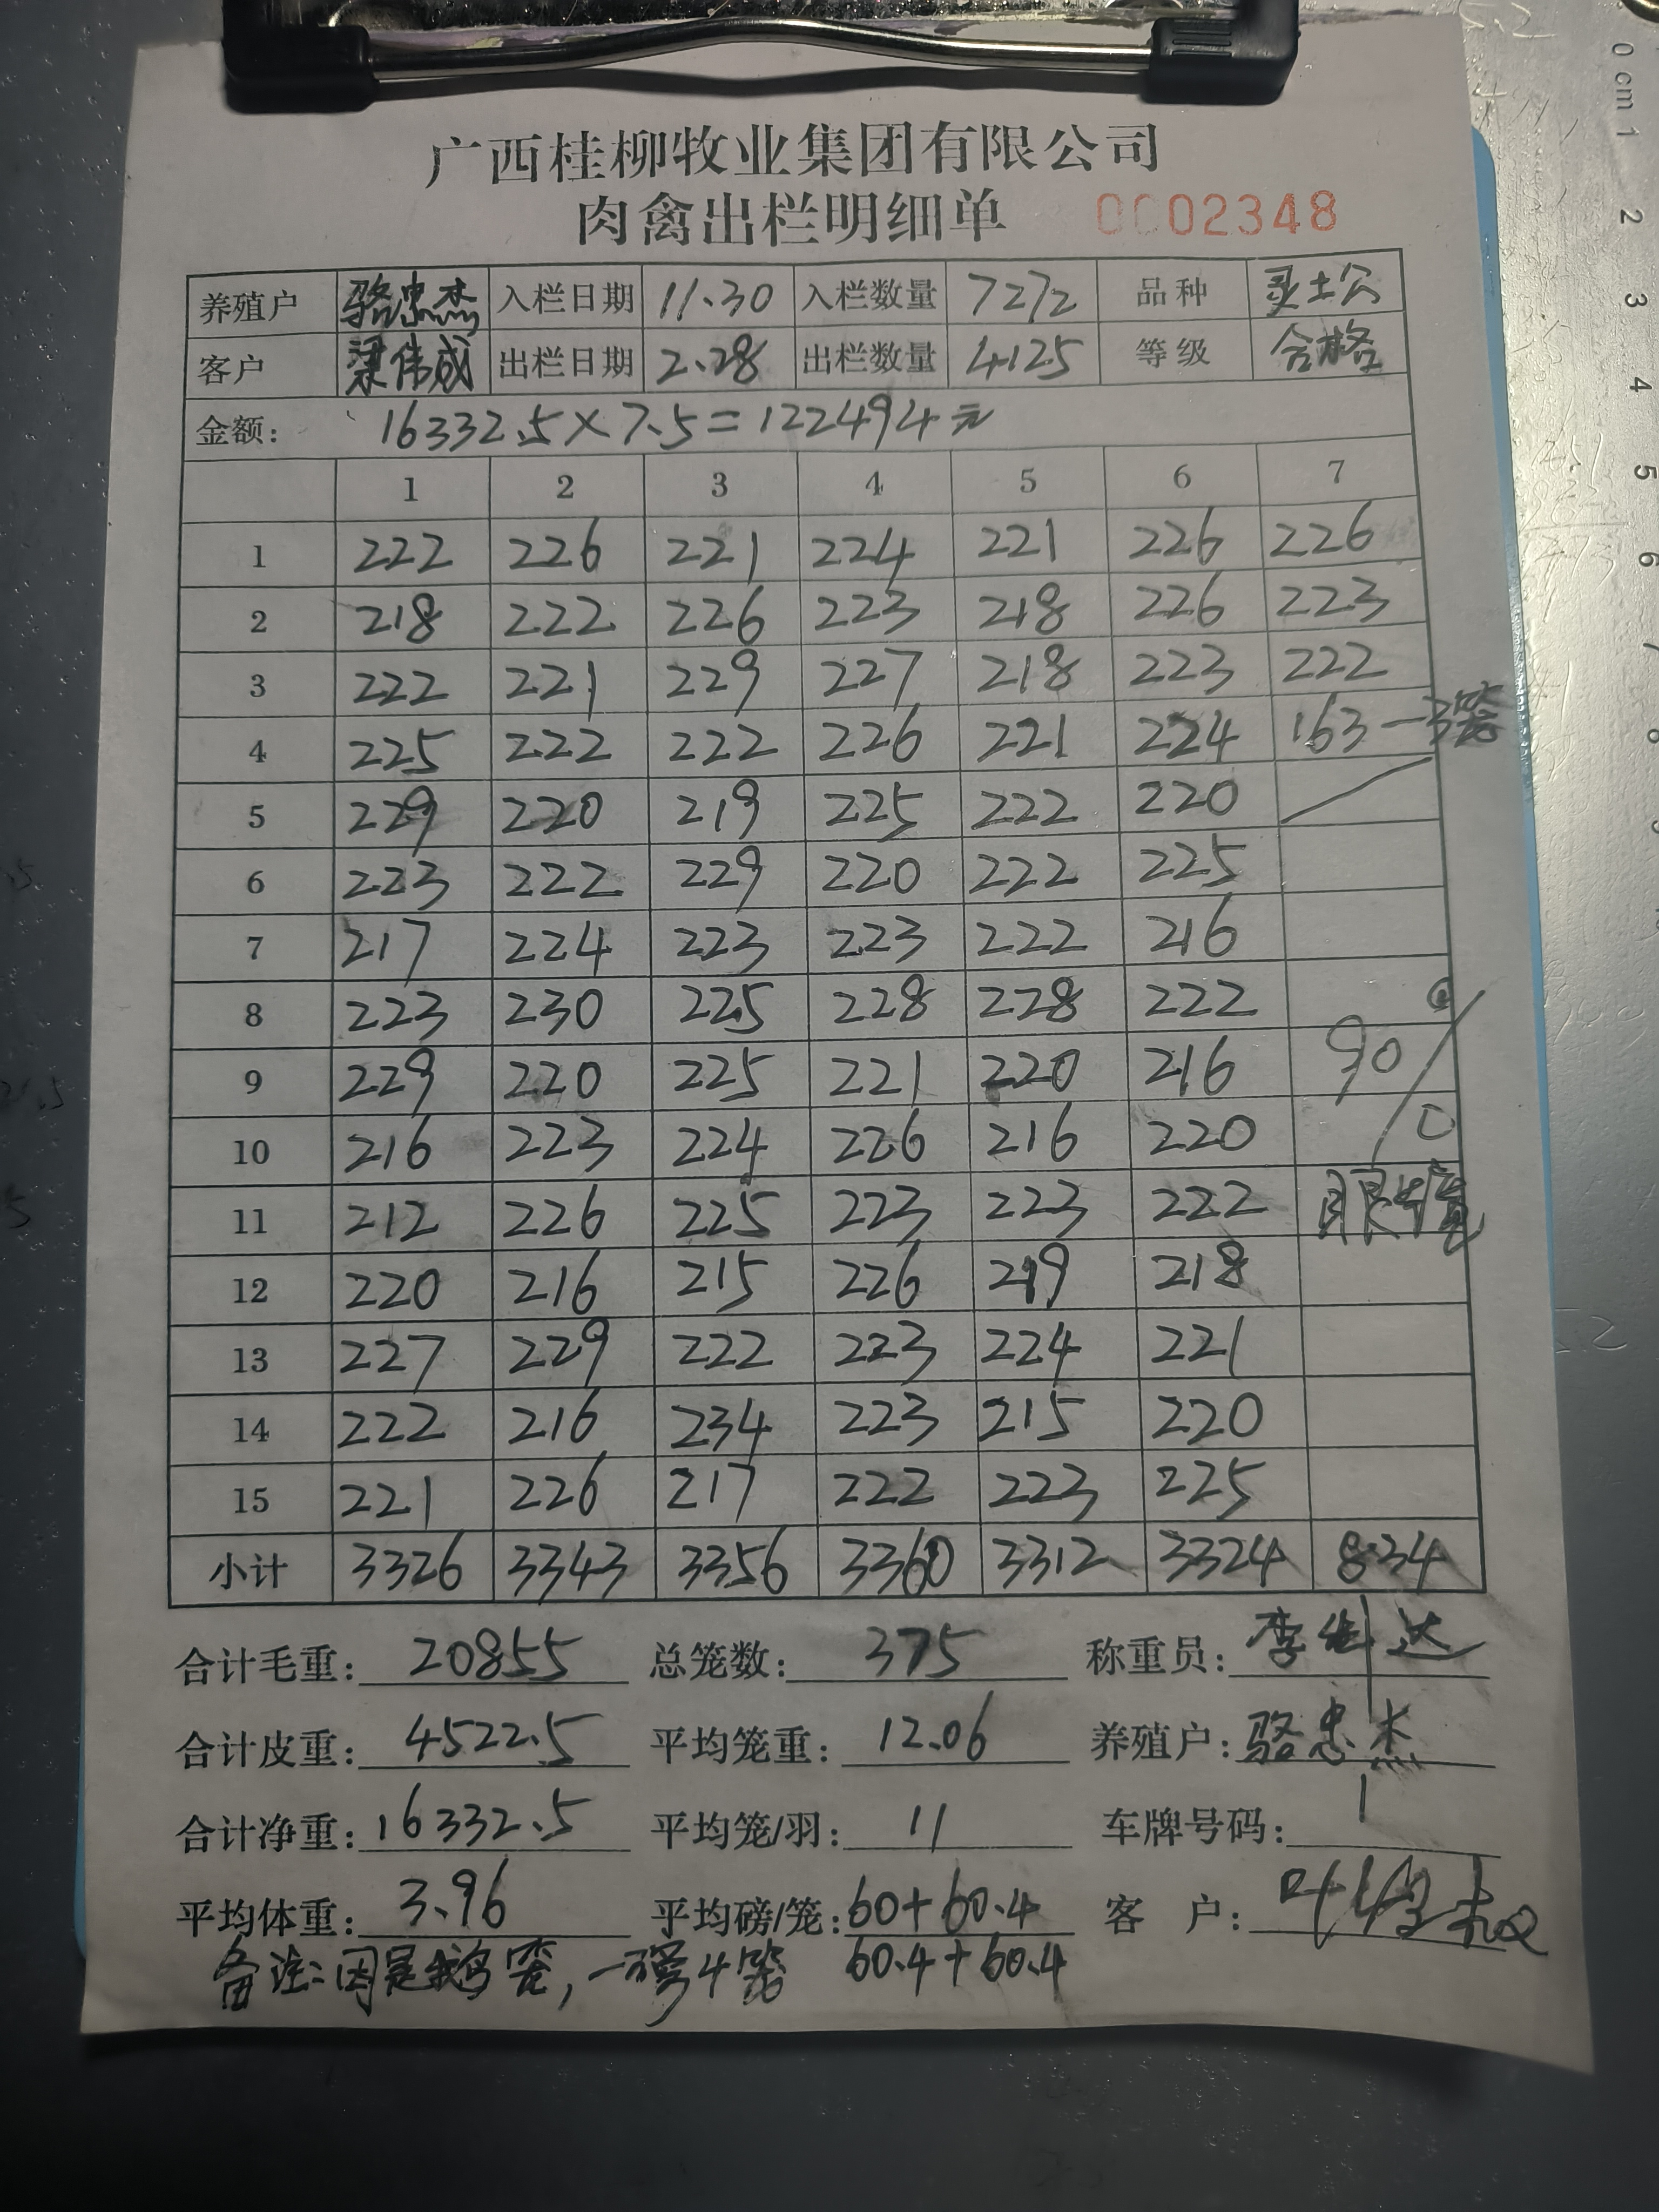 广西桂柳牧业集团有限公司
肉禽出栏明细单 0002348
养殖户 骆忠杰 入栏日期 11.30 入栏数量 7272 品种 灵土公
客户 梁伟成 出栏日期 2.28 出栏数量 4125 等级 合格
金额: 16332.5×7.5=122494元
1 2 3 4 5 6 7
1 222 226 221 224 221 226 226
2 218 222 226 223 218 226 223
3 222 221 229 227 218 223 222
4 225 222 222 226 221 224 163-3笼
5 229 220 219 225 222 220
6 223 222 229 220 222 225
7 217 224 223 223 222 216
8 223 230 225 228 228 222
9 229 220 225 221 220 216 90%
10 216 223 224 226 216 220
11 212 226 225 223 223 222 眼睛
12 220 216 215 226 219 218
13 227 229 222 223 224 221
14 222 216 234 223 215 220
15 221 226 217 222 223 225
小计 3326 3343 3356 3360 3312 3324 834
合计毛重: 20855 总笼数: 375 称重员: 李
合计皮重: 4522.5 平均笼重: 12.06 养殖户: 骆忠杰
合计净重: 16332.5 平均笼/羽: 11 车牌号码:
平均体重: 3.96 平均磅/笼: 60+60.4 客 户:
备注:因是鹅笼,一磅4笼 60.4+60.4
0 cm 1
2
3
4
5
6
7
8